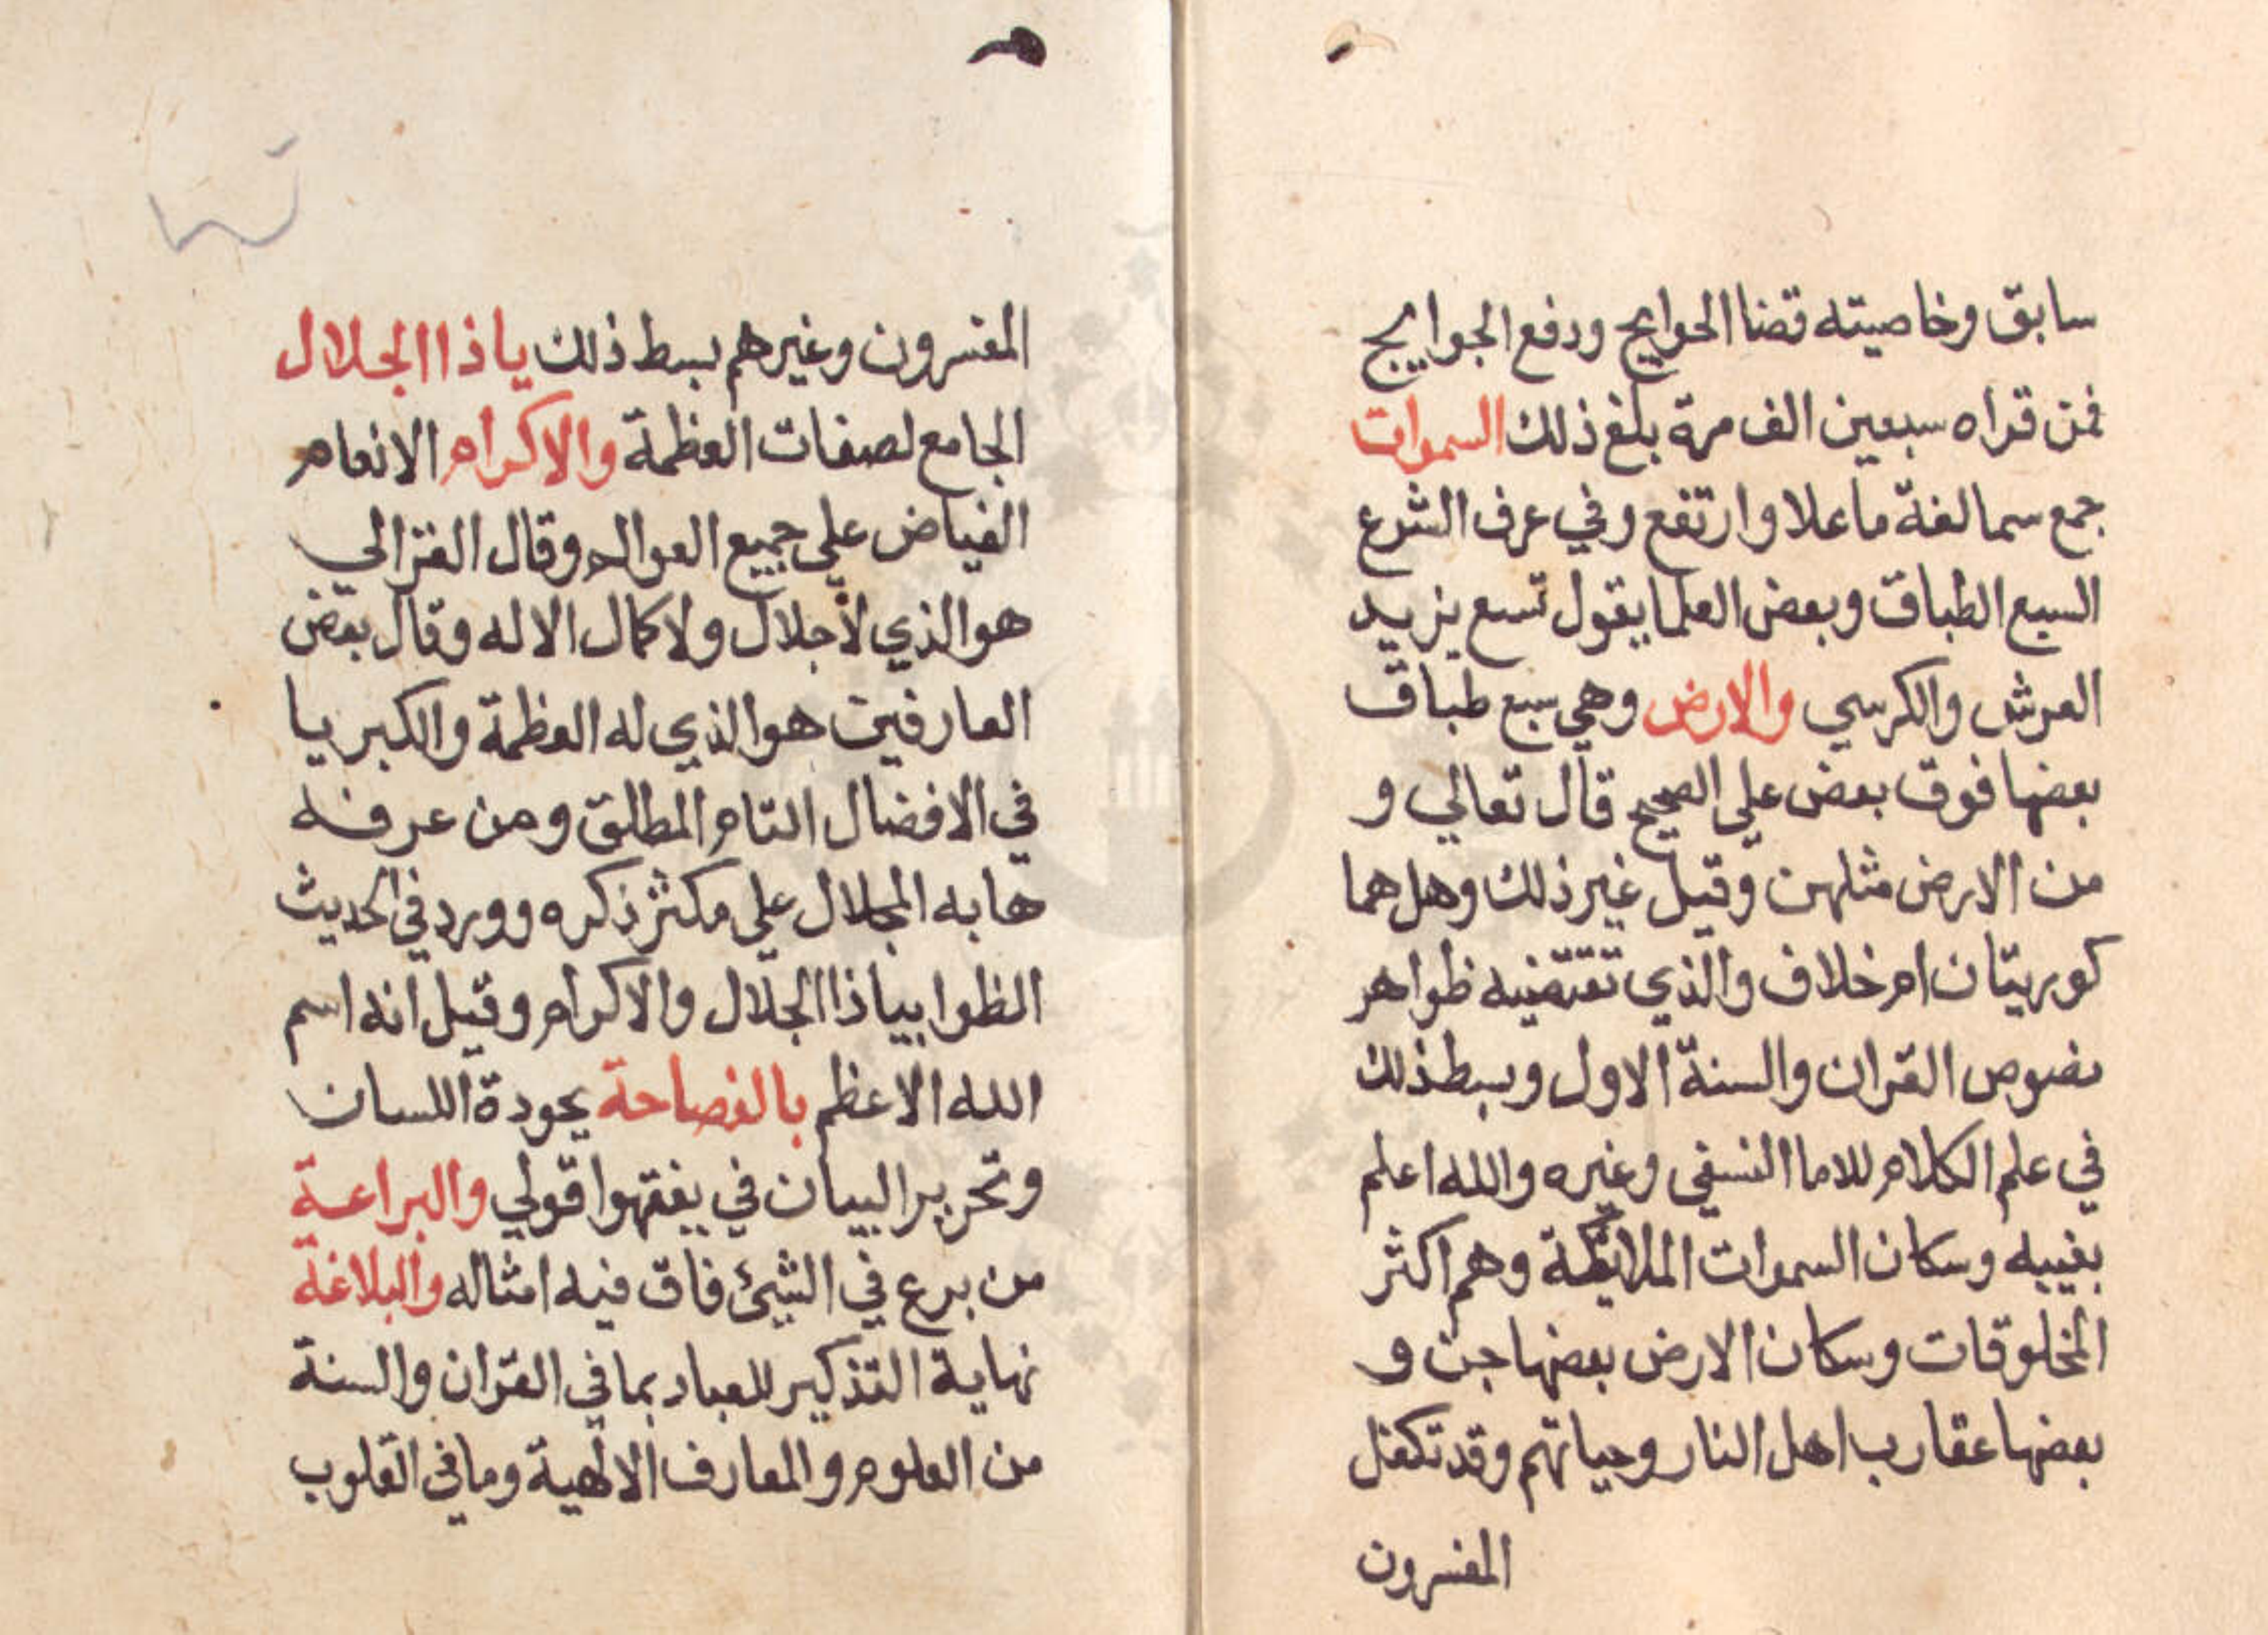 سابق وخاصيته قضا الحوايج ودفع الجوايح
فمن قراه سبعين الف مرة بلغ ذلك السموات
جمع سما لغة ما علا وارتفع وفي عرف الشرع
السبع الطباق وبعض العلما يقول تسع يزيد
العرش والكرسي والارض وهي سبع طباق
بعضها فوق بعض علي الصحيح قال تعالي و
من الارض مثلهن وقيل غير ذلك وهل هما
كوريتان ام خلاف والذي تقتضيه ظواهر
نصوص القران والسنة الاول وبسط ذلك
في علم الكلام للاما النسفي وغيره والله اعلم
بغيبه وسكان السموات الملايكة وهم اكثر
المخلوقات وسكان الارض بعضها جن و
بعضها عقارب اهل النار وحياتهم وقد تكفل
المفسرون
المفسرون وغيرهم بسط ذلك ياذا الجلال
الجامع لصفات العظمة والاكرام الانعام
الفياض علي جميع العوالم وقال الغزالي
هو الذي لا جلال ولا كمال الا له وقال بعض
العارفين هو الذي له العظمة والكبريا
في الافضال التام المطلق ومن عرفه
هابه الجلال علي مكثر ذكره وورد في الحديث
الظوا بياذا الجلال والاكرام وقيل انه اسم
الله الاعظم بالفصاحة بجودة اللسان
وتحرير البيان في يفقهوا قولي والبراعة
من برع في الشيئ فاق فيه امثاله والبلاغة
نهاية التذكير للعباد بما في القران والسنة
من العلوم والمعارف الالهية وما في القلوب